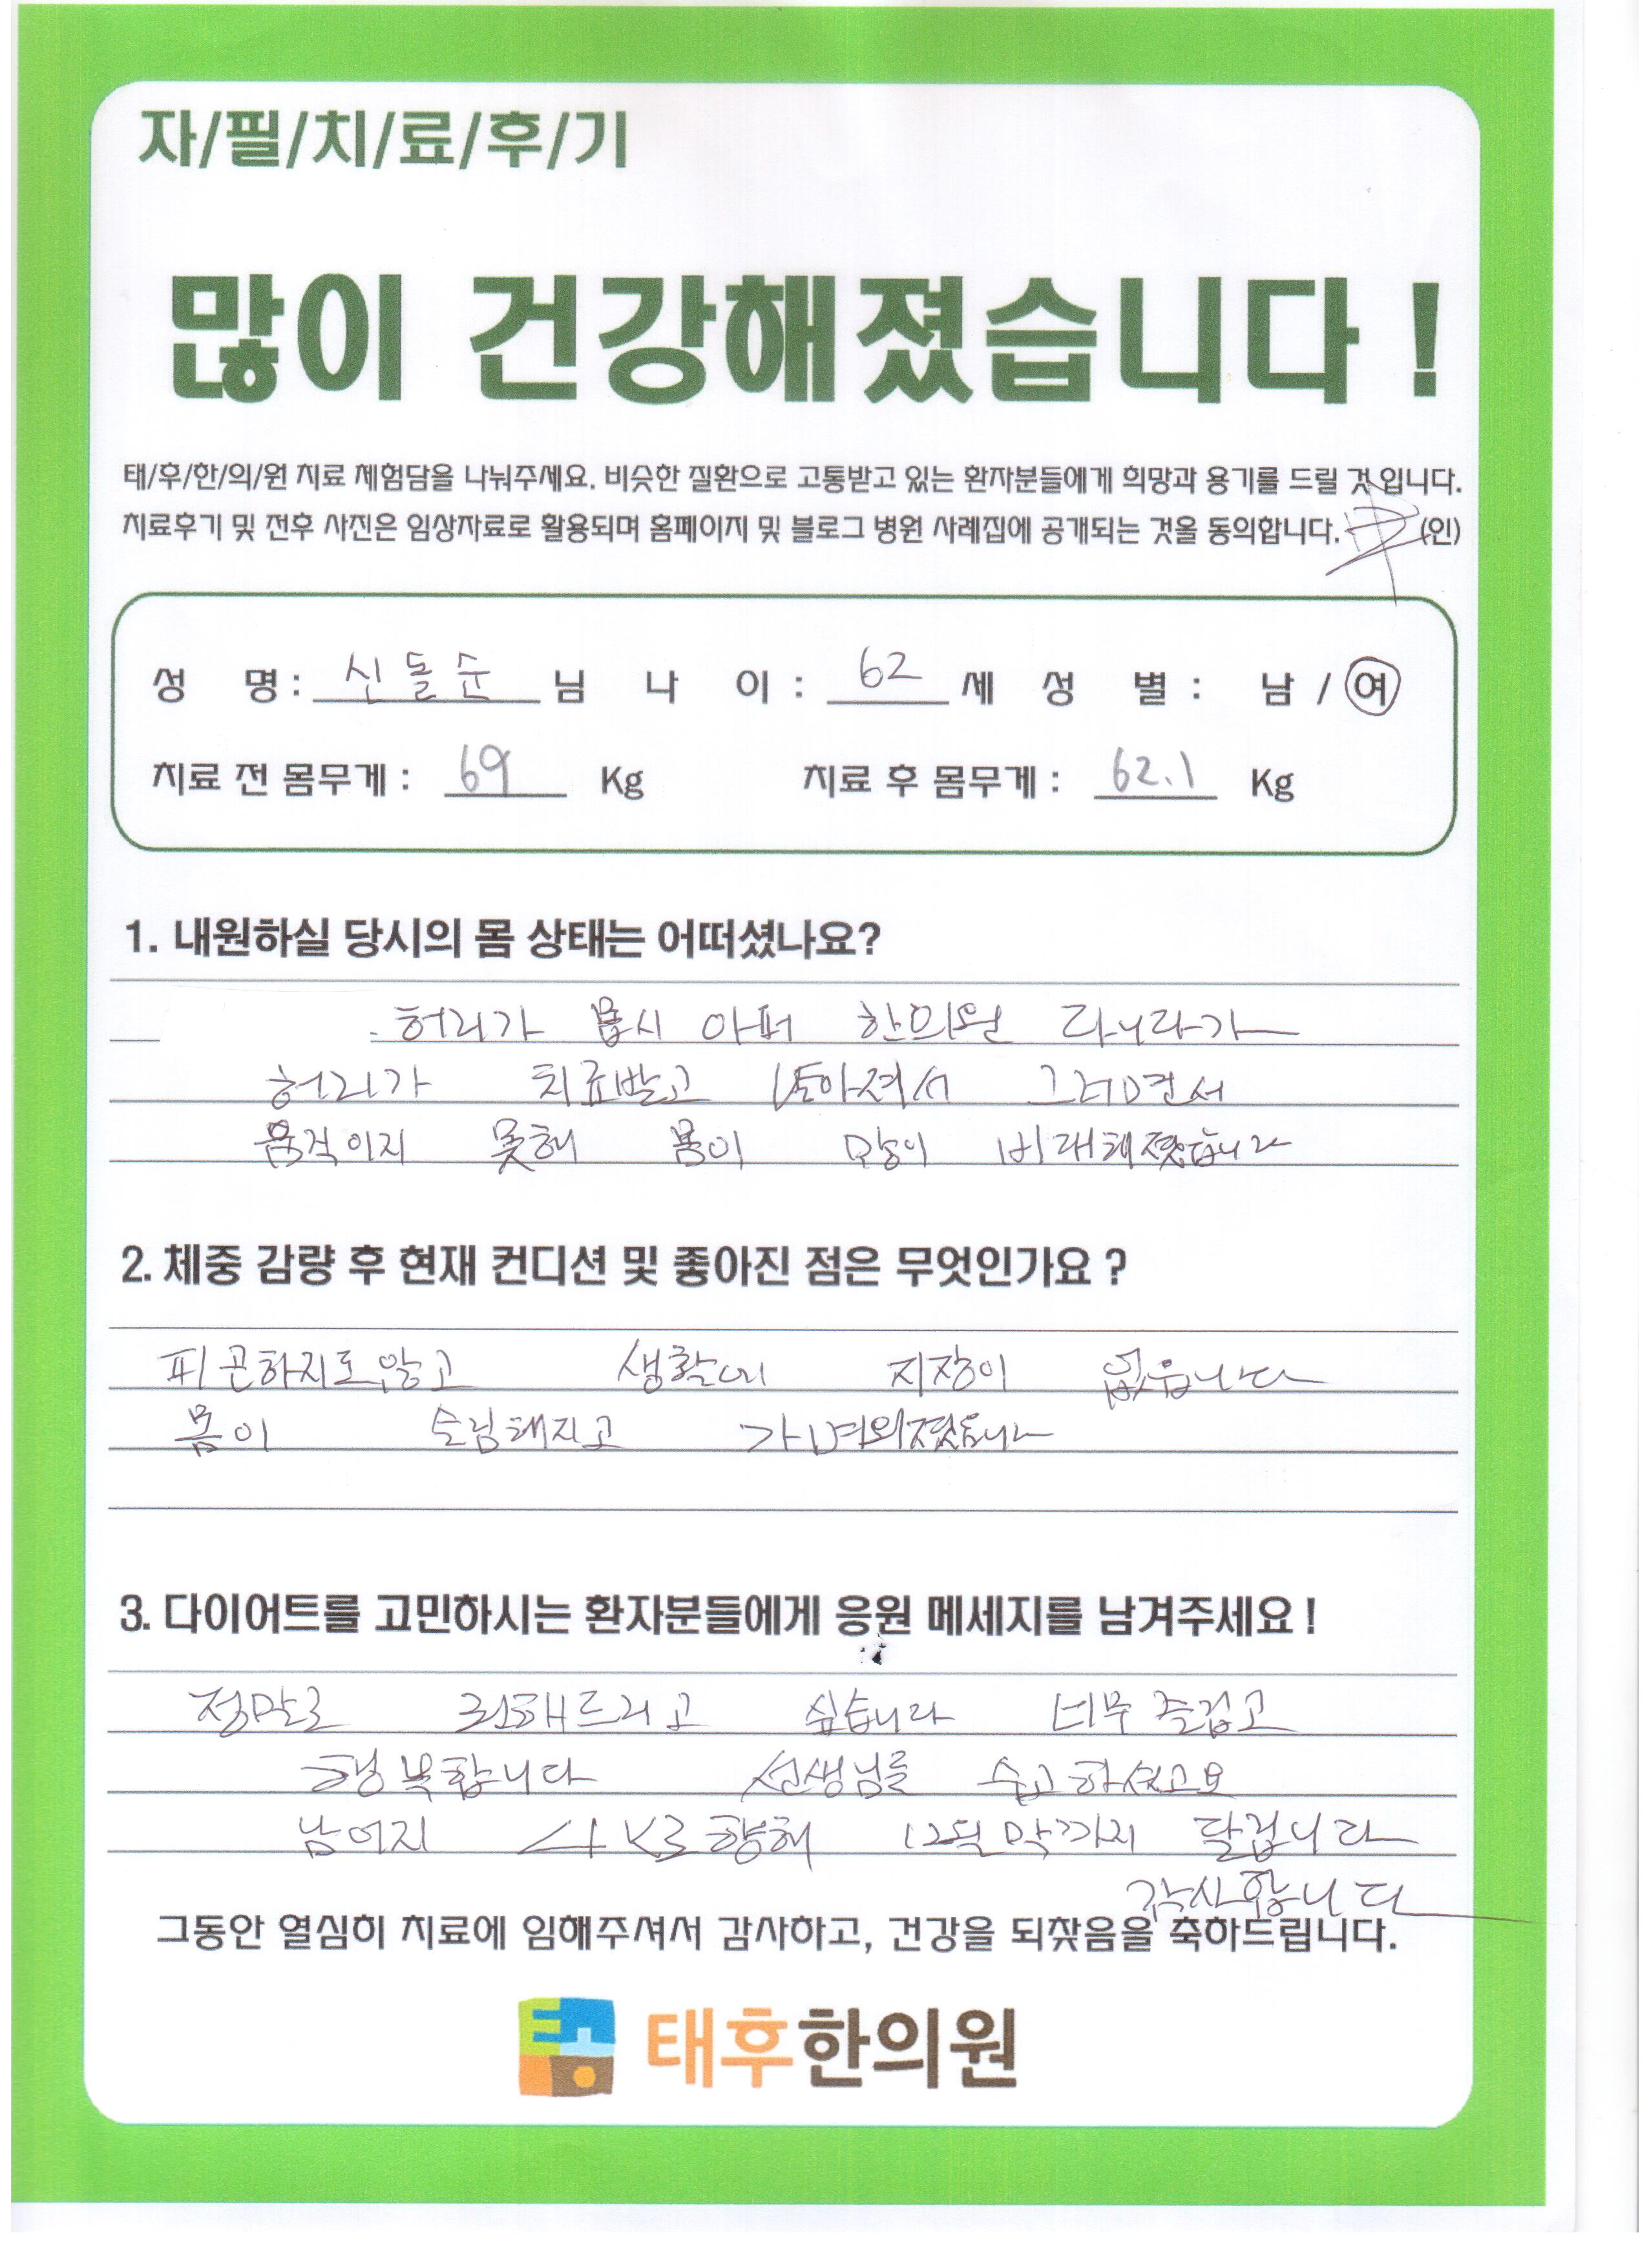 자/필/치/료/후/기
많이 건강해졌습니다 !
태/후/한/의/원 치료 체험담을 나눠주세요. 비슷한 질환으로 고통받고 있는 환자분들에게 희망과 용기를 드릴 것 입니다.
치료후기 및 전후 사진은 임상자료로 활용되며 홈페이지 및 블로그 병원 사례집에 공개되는 것을 동의합니다. (인)
성 명 : 신돌순 님 나 이 : 62 세 성 별 : 남 / 여
치료 전 몸무게 : 69 Kg 치료 후 몸무게 : 62.1 Kg
1. 내원하실 당시의 몸 상태는 어떠셨나요?
허리가 몹시 아퍼 한의원 다니다가
허리가 치료받고 낳아져서 그러면서
움직이지 못해 몸이 많이 비대해졌습니다
2. 체중 감량 후 현재 컨디션 및 좋아진 점은 무엇인가요 ?
피곤하지도 않고 생활에 지장이 없습니다
몸이 슬림해지고 가벼워졌습니다
3. 다이어트를 고민하시는 환자분들에게 응원 메세지를 남겨주세요 !
정말로 권해드리고 싶습니다 너무 즐겁고
행복합니다 선생님들 수고하셨고요
남어지 4 K로 향해 12월 막까지 달립니다
감사합니다
그동안 열심히 치료에 임해주셔서 감사하고, 건강을 되찾음을 축하드립니다.
태후한의원